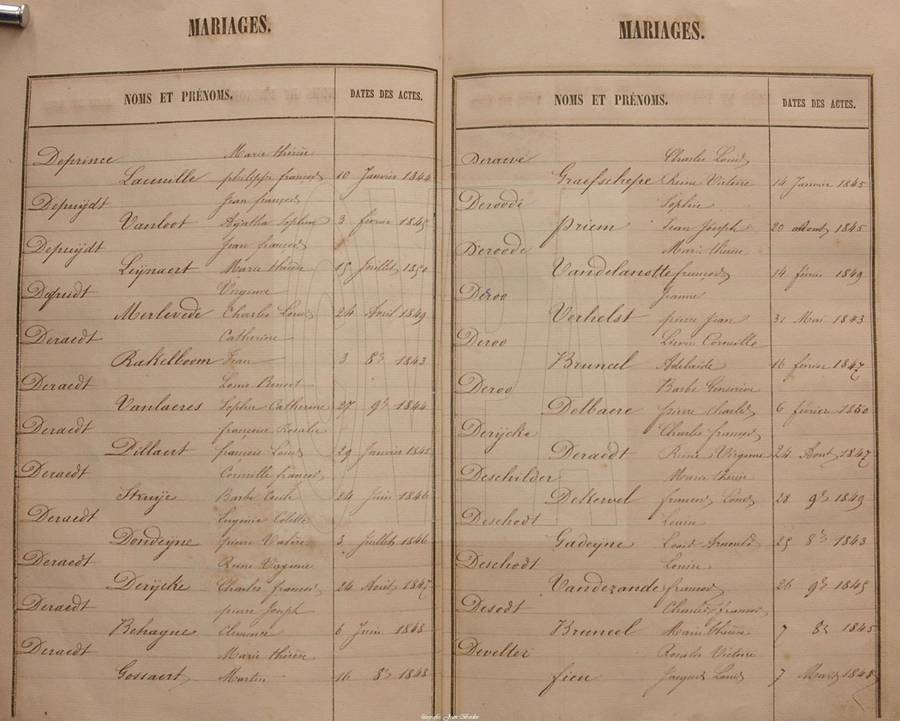 MARIAGES.
NOMS ET PRÉNOMS. DATES DES ACTES.
Deprince Marie thérèse
philippe françois 10 Janvier 1844
Depuijdt Jean françois
Vanloot Agatha Sophie 3 février 1845
Depuijdt Jean françois
Leijnaert Marie thérèse 15 Juillet 1850
Virginie
Merlevede Charles Louis 24 Avril 1849
Deraedt Catherine
Rakelboom Jean 3 8bre 1843
Deraedt Louis Benoit
Vanlaeres Sophie Catherine 27 9bre 1844
Deraedt françoise Rosalie
Dillaert françois Louis 29 Janvier
Deraedt Corneille françois
Struije Barbe 24 Juin 1846
Deraedt Eugenie Colette
Dondeijne pierre 3 Juillet 1846
Deraedt Reine Virginie
Derijcke Charles françois 24 Août 1847
Deraedt pierre Joseph
Behague Clemence 6 Juin 1848
Deraedt Marie thérèse
Gossaert Martin 16 8bre 1848
MARIAGES.
NOMS ET PRÉNOMS. DATES DES ACTES.
Charles Louis
Graefschepe Reine Victoire 14 Janvier 1845
Deroode Sophie
Priem Jean Joseph 20 Août 1845
Deroode Marie thérèse
Vandelanotte françois 14 février 1849
Deroo Jeanne
Verhelst pierre Jean 31 Mai 1843
Deroo Corneille
Bruneel Adelaïde 16 février 1847
Deroo Barbe Geneviève
Delbaere pierre Charles 6 février 1850
Derijcke Charles françois
Deraedt Reine Virginie 24 Août 1847
Deschilder Marie thérèse
françois Louis 28 9bre 1849
Deschodt Louise
Gadeijne Louis Arnould 25 8bre 1843
Deschodt Louise
Vandezande françois 26 9bre 1845
Desodt Charles françois
Bruneel Marie thérèse 7 8bre 1845
Develter Rosalie Victoire
fieu Jacques Louis 7 Mars 1848